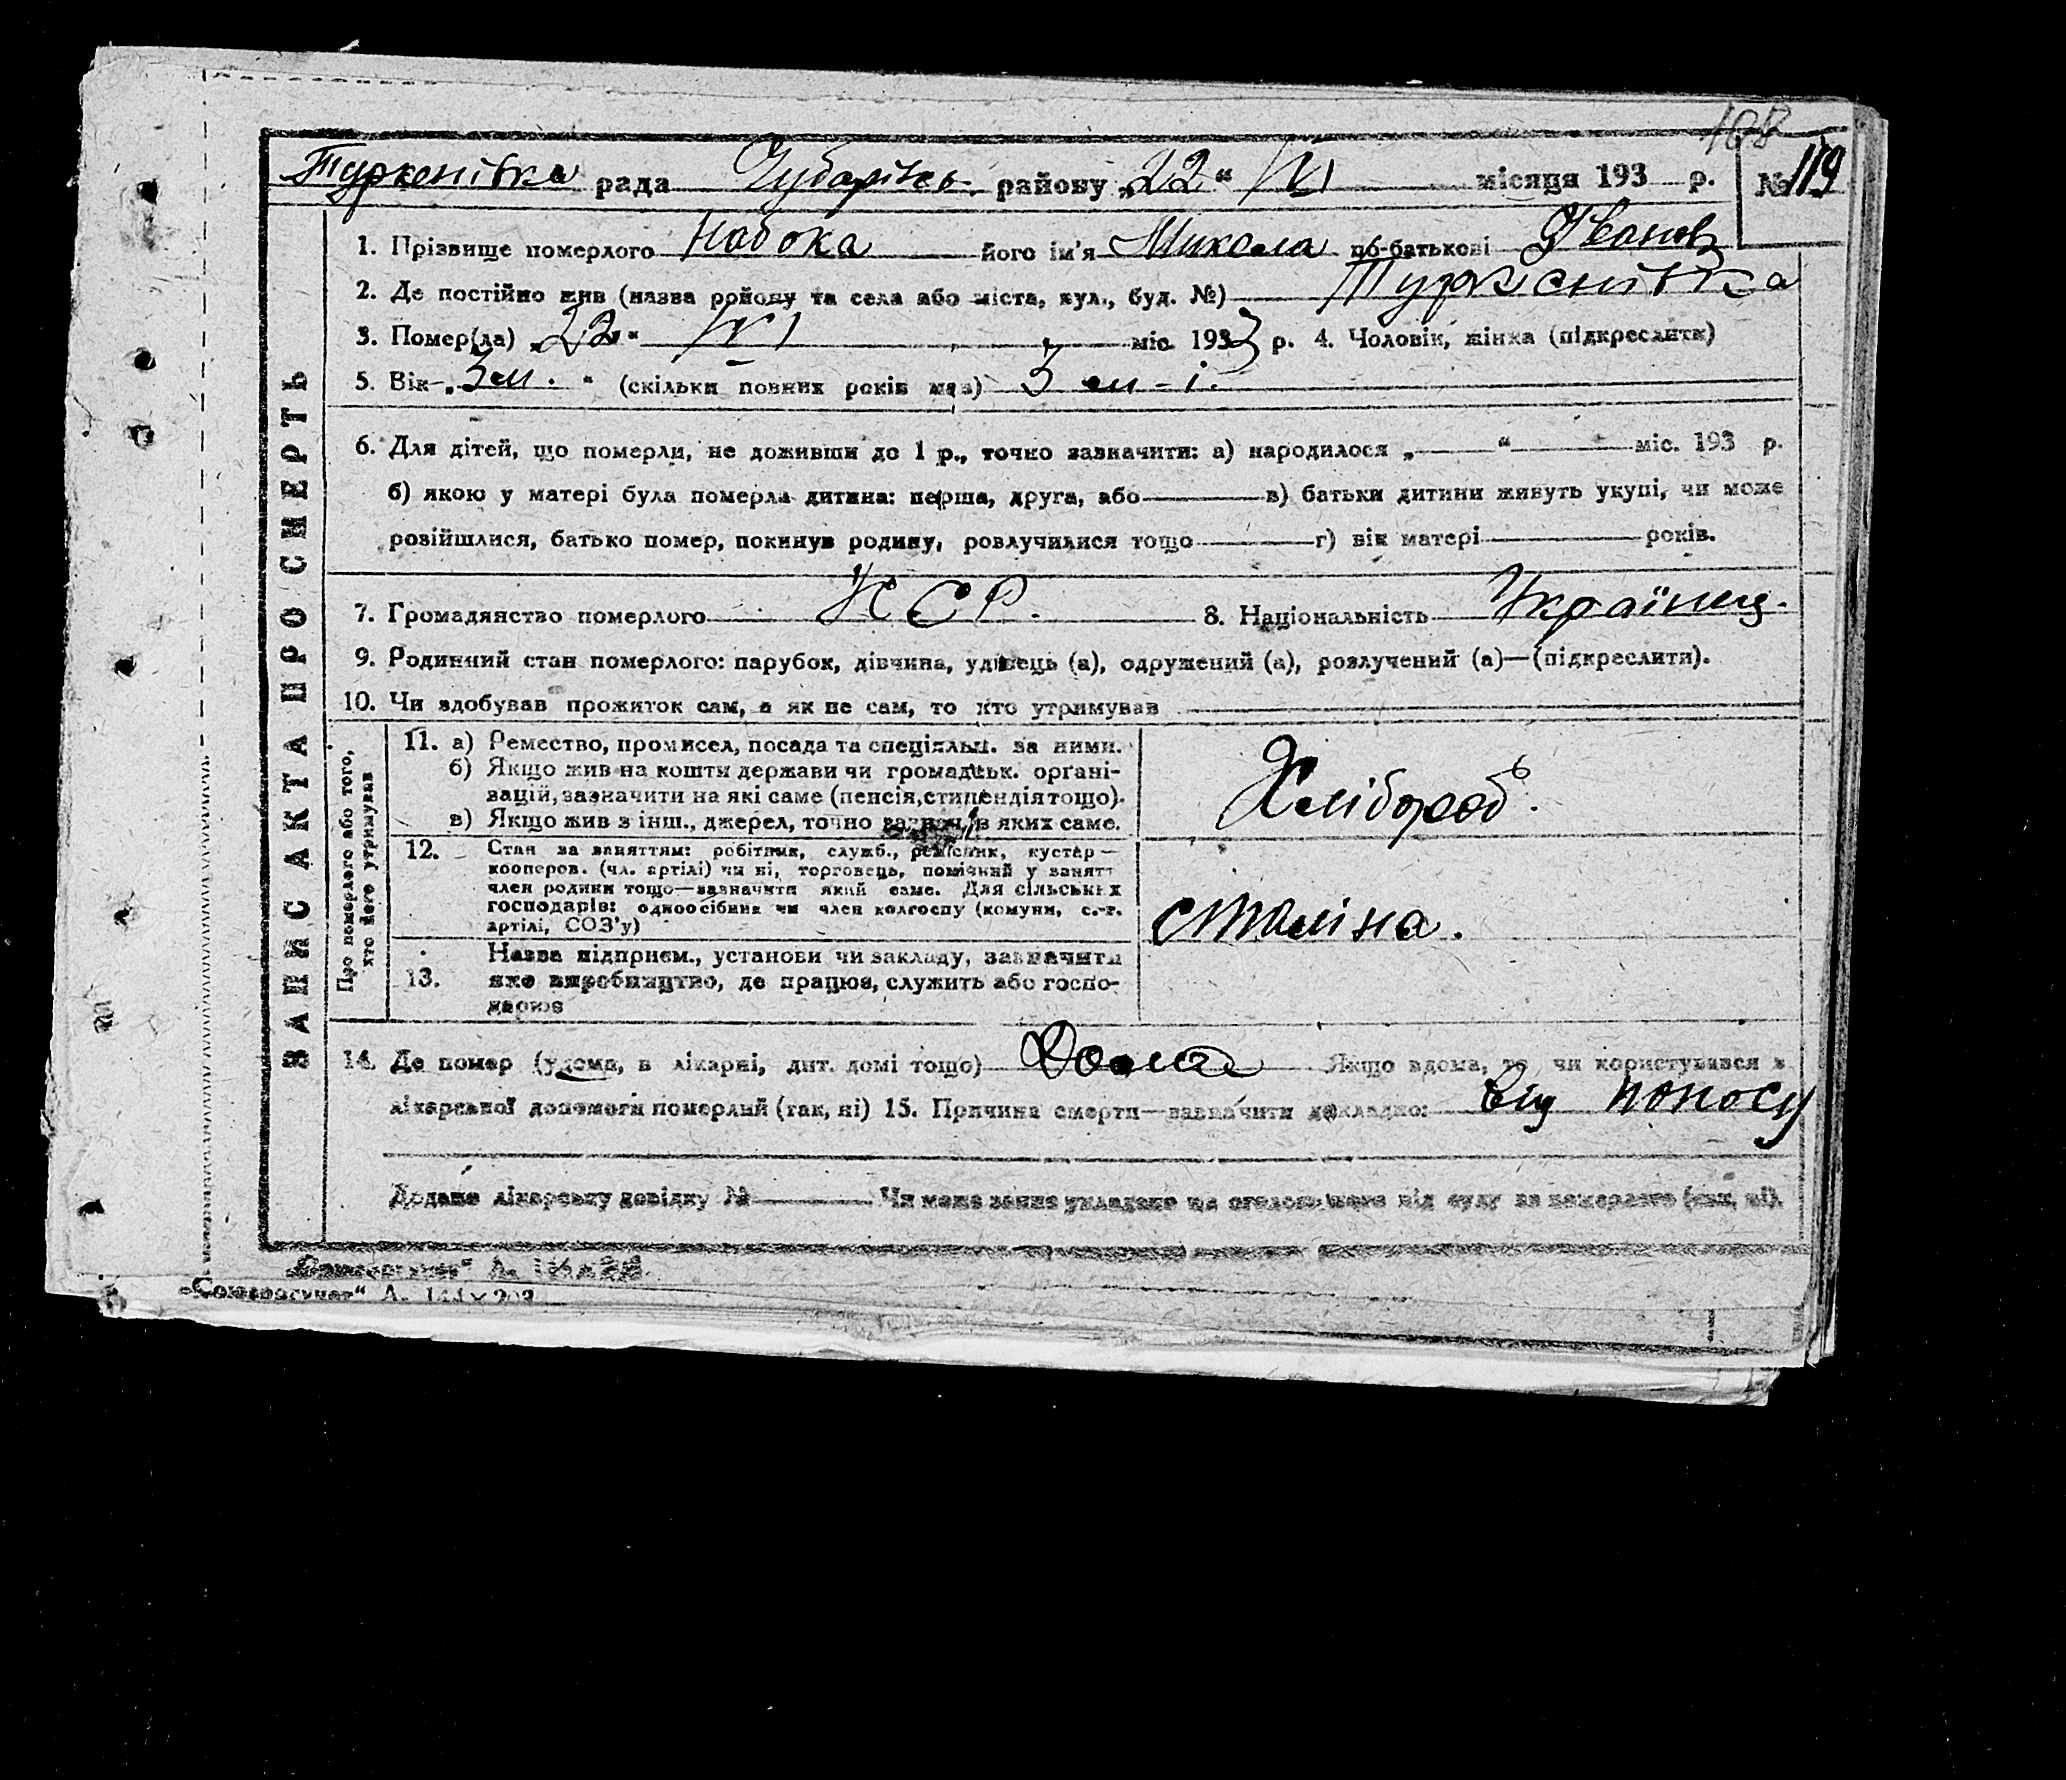 108
Туркенівка рада Чубарівсь. району „22“ VI місяця 193 р. № 119
1. Прізвище померлого Набока його ім'я Микола по-батькові Іванов
2. Де постійно жив (назва району та села або міста, вул., буд. №) Туркенівка
3. Помер(ла) „22“ VI міс. 1933 р. 4. Чоловік, жінка (підкреслити)
5. Вік „3 м.“ (скільки повних років мав) 3 м-і.
6. Для дітей, що померли, не доживши до 1 р., точно зазначити: а) народилося „ “ міс. 193 р.
б) якою у матері була померла дитина: перша, друга, або в) батьки дитини живуть укупі, чи може
розійшлися, батько помер, покинув родину, розлучилися тощо г) вік матері років.
7. Громадянство померлого УССР. 8. Національність Українц.
9. Родинний стан померлого: парубок, дівчина, удівець (а), одружений (а), розлучений (а)—(підкреслити).
10. Чи здобував прожиток сам, а як не сам, то хто утримував
ЗАПИС АКТА ПРО СМЕРТЬ
Про померлого або того,
хто його утримував
11. а) Ремество, промисел, посада та спеціяльн. за ними.
б) Якщо жив на кошти держави чи громадськ. органі-
зацій, зазначити на які саме (пенсія, стипендія тощо).
в) Якщо жив з інш., джерел, точно зазнач. з яких саме.
Хлібороб.
12. Стан за заняттям: робітник, служб., ремісник, кустар—
кооперов. (чл. артілі) чи ні, торговець, помічний у занятт
член родини тощо—зазначити який саме. Для сільських
господарів: одноосібник чи член колгоспу (комуни, с.-г.
артілі, СОЗ'у)
Сталіна.
Назва підприєм., установи чи закладу, зазначити
13. яке виробництво, де працює, служить або госпо-
дарює
14. Де помер (удома, в лікарні, дит. домі тощо) Дома Якщо вдома, то чи користувався з
лікарської допомоги померлий (так, ні) 15. Причина смерти—зазначити докладно: від поносу
Додано лікарську довідку № Чи може